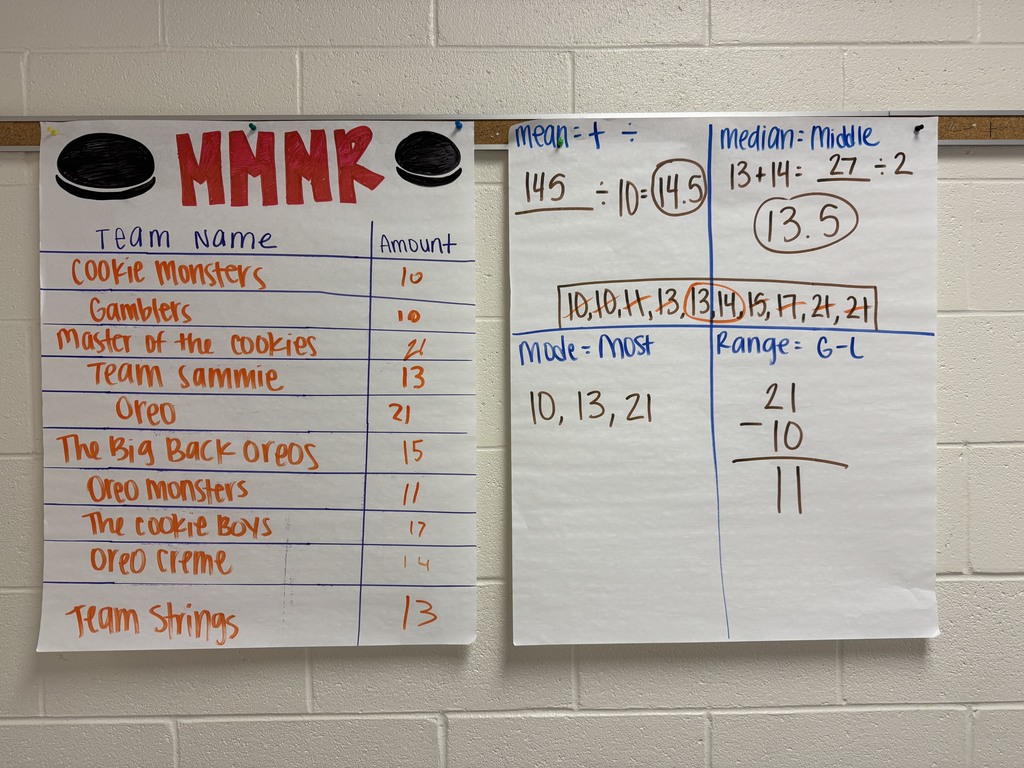 MMMR
Team Name Amount
Cookie Monsters 10
Gamblers 10
Master of the cookies 21
Team Sammie 13
Oreo 21
The Big Back Oreos 15
Oreo Monsters 11
The Cookie Boys 17
Oreo Creme 14
Team Strings 13
mean = + ÷
145 ÷ 10 = 14.5
median = Middle
13 + 14 = 27 ÷ 2
13.5
10, 10, 11, 13, 13, 14, 15, 17, 21, 21
Mode = Most
10, 13, 21
Range = G - L
21
- 10
11